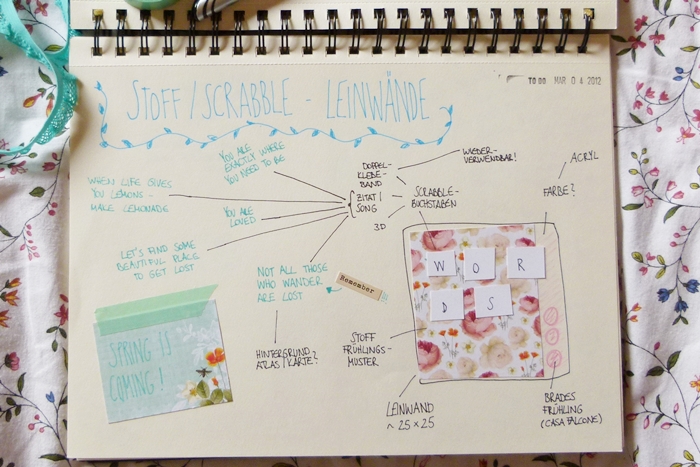 TO DO MAR 04 2012
STOFF / SCRABBLE - LEINWÄNDE
YOU ARE
EXACTLY WHERE
YOU NEED TO BE
WHEN LIFE GIVES
YOU LEMONS -
MAKE LEMONADE
YOU ARE
LOVED
LET'S FIND SOME
BEAUTIFUL PLACE
TO GET LOST
NOT ALL THOSE
WHO WANDER
ARE LOST
Remember
HINTERGRUND
ATLAS / KARTE?
SPRING IS
COMING!
DOPPEL-
KLEBE-
BAND
ZITAT /
SONG
3D
WIEDER-
VERWENDBAR!
SCRABBLE-
BUCHSTABEN
ACRYL
FARBE?
W O R
D S
STOFF
FRÜHLINGS-
MUSTER
LEINWAND
~ 25 x 25
BRADES
FRÜHLING
(CASA FALCONE)